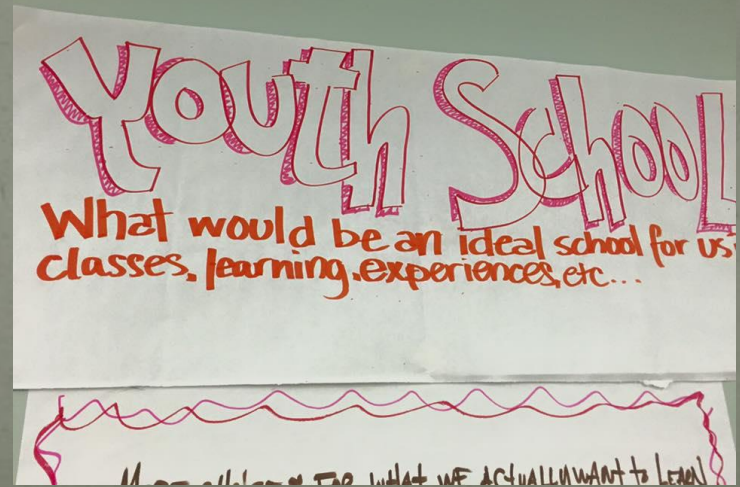 Youth School
What would be an ideal school for us
classes, learning, experiences, etc...
FOR WHAT WE ACTUALLY WANT to LEARN